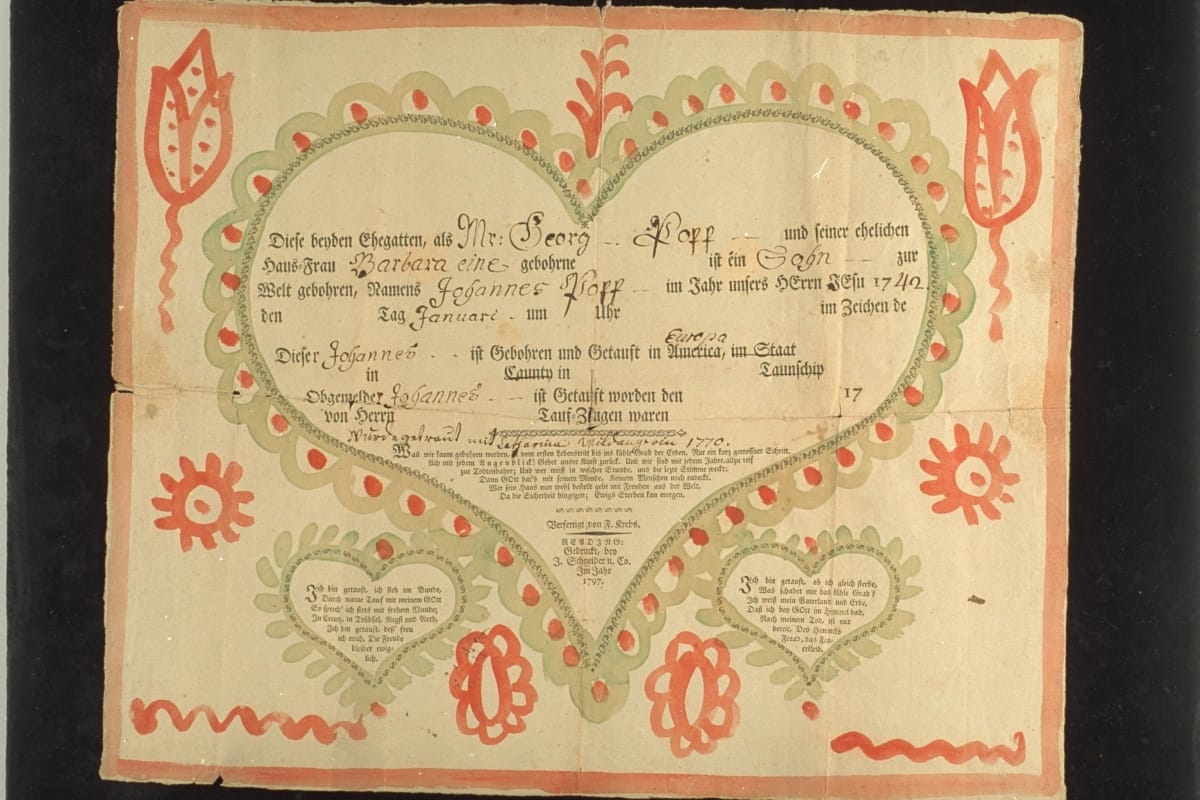 Diese beyden Ehegatten, als Mr: Georg Popp und seiner ehelichen
Haus-Frau Barbara eine gebohrne ist ein Sohn zur
Welt gebohren, Namens Johannes Popp im Jahr unsers HErrn JEsu 1742.
den Tag Januari um Uhr im Zeichen de
Europa
Dieser Johannes ist Gebohren und Getauft in America, im Staat
in Caunty in Taunschip
Obgemelder Johannes ist Getauft worden den 17
von Herrn Tauf-Zeugen waren
Wurde getraut mit Catharina 1770.
Wan wir kaum gebohren werden, vom ersten Lebenstritt bis ins kühle Grab der Erden, Nur ein kurz gemeßner Schritt.
Ach mit jedem Augenblick! Gehet unsre Kraft zurück. Und wir sind mit jedem Jahre, allzu reif
zur Todtenbahre; Und wer weist in welcher Stunde, uns die lezte Stimme weckt;
Dann GOtt hat's mit seinem Munde, Keinem Menschen noch endeckt.
Wer sein Haus nun wohl bestellt geht mit Freuden aus der Welt.
Da die Sicherheit hingegen; Ewigs Sterben kan erregen.
Verfertigt von F. Krebs.
READING:
Gedruckt, bey
J. Schneider u. Co.
Im Jahr
1797.
Ich bin getauft, ich steh im Bunde,
Durch meine Tauf mit meinem GOtt
So sprech' ich stets mit frohem Munde;
In Creutz, in Trübsal, Angst und Noth,
Ich bin getauft, deß' freu
ich mich, Die Freude
bleibet ewig-
lich.
Ich bin getauft, ob ich gleich sterbe,
Was schadet mir das kühle Grab?
Ich weiß mein Vaterland und Erbe,
Daß ich bey GOtt im Himmel hab,
Nach meinem Tod, ist mir
bereit, Des Himmels
Freud, das Fey-
erkleid.